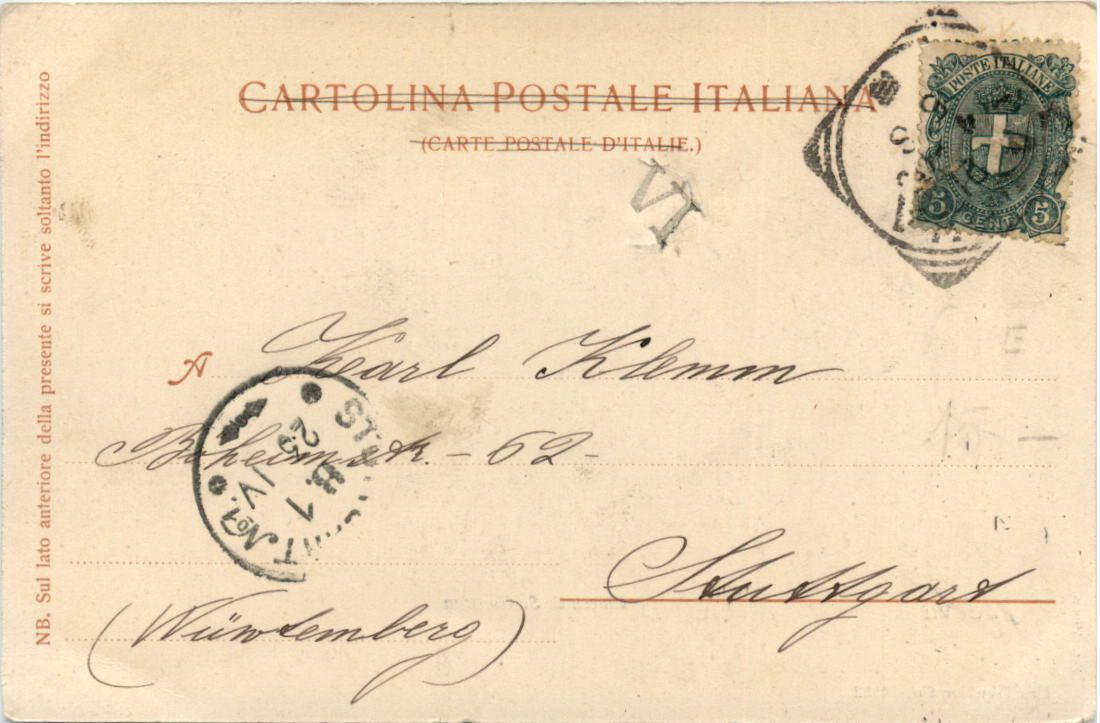 CARTOLINA POSTALE ITALIANA
(CARTE POSTALE D'ITALIE.)
POSTE ITALIANE
5 CENT. 5
VI
A Karl Klemm
Böheimstr. - 62 -
Stuttgart
(Würtemberg)
STUTTGART No1.
29 IV
8. 1
NB. Sul lato anteriore della presente si scrive soltanto l'indirizzo